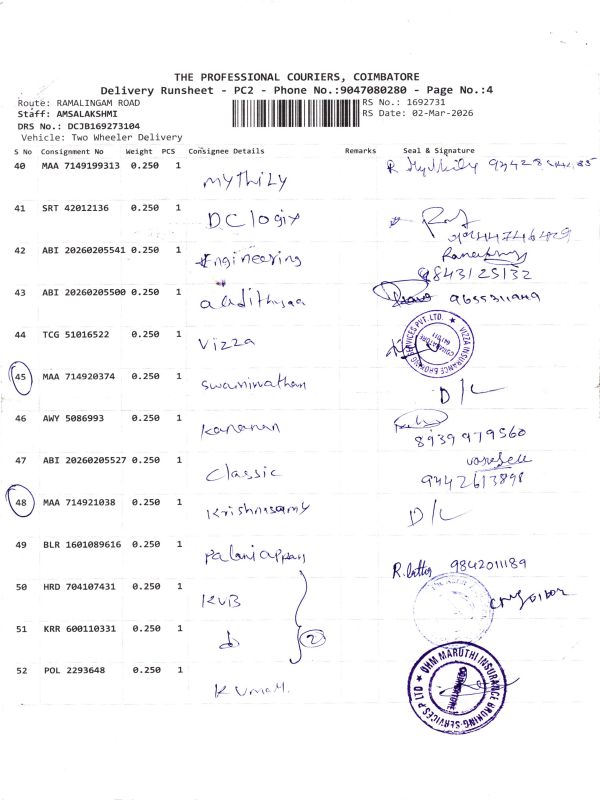 THE PROFESSIONAL COURIERS, COIMBATORE
Delivery Runsheet - PC2 - Phone No.:9047080280 - Page No.:4
Route: RAMALINGAM ROAD
RS No.: 1692731
Staff: AMSALAKSHMI
RS Date: 02-Mar-2026
DRS No.: DCJB169273104
Vehicle: Two Wheeler Delivery
S No Consignment No Weight PCS Consignee Details Remarks Seal & Signature
40 MAA 7149199313 0.250 1
mythily
41 SRT 42012136 0.250 1
DC logix
42 ABI 20260205541 0.250 1
Engineering
9843125132
43 ABI 20260205500 0.250 1
9655311949
44 TCG 51016522 0.250 1
Vizza
VIZZA INSURANCE BROKING SERVICES PVT. LTD.
COIMBATORE
45 MAA 714920374 0.250 1
Swaminathan
D/L
46 AWY 5086993 0.250 1
Kannan
8939979560
47 ABI 20260205527 0.250 1
Classic
9442613898
48 MAA 714921038 0.250 1
Krishnasamy
D/L
49 BLR 1601089616 0.250 1
Palaniappan
9842011189
50 HRD 704107431 0.250 1
KVB
51 KRR 600110331 0.250 1
2
52 POL 2293648 0.250 1
Kumar.
OHM MARUTHI INSURANCE BROKING SERVICES P LTD